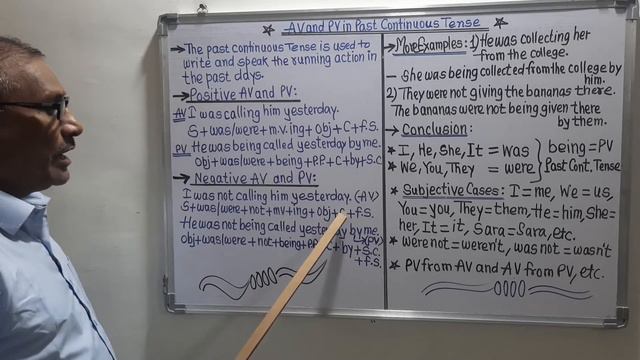 AV and PV in Past Continuous Tense
→ The past continuous Tense is used to
write and speak the running action in
the past days.
→ Positive AV and PV:
AV I was calling him yesterday.
S+was/were+m.v.ing+obj+C+f.s.
PV He was being called yesterday by me.
Obj+was/were+being+p.p.+C+by+S.C
→ Negative AV and PV:
I was not calling him yesterday. (AV)
S+was/were+not+mv+ing+obj+C+f.s.
He was not being called yesterday by me.
(PV)
obj+was/were+not+being+p.p.+C+by+S.C.
+f.s.
→ More Examples: 1) He was collecting her
from the college.
– She was being collected from the college by
him.
2) They were not giving the bananas there.
The bananas were not being given there
by them.
→ Conclusion:
* I, He, She, It = was
* We, You, They = were
being = PV
Past Cont. Tense
* Subjective Cases: I = me, We = us,
You = you, They = them, He = him, She =
her, It = it, Sara = Sara, etc.
* were not = weren't, was not = wasn't
* PV from AV and AV from PV, etc.